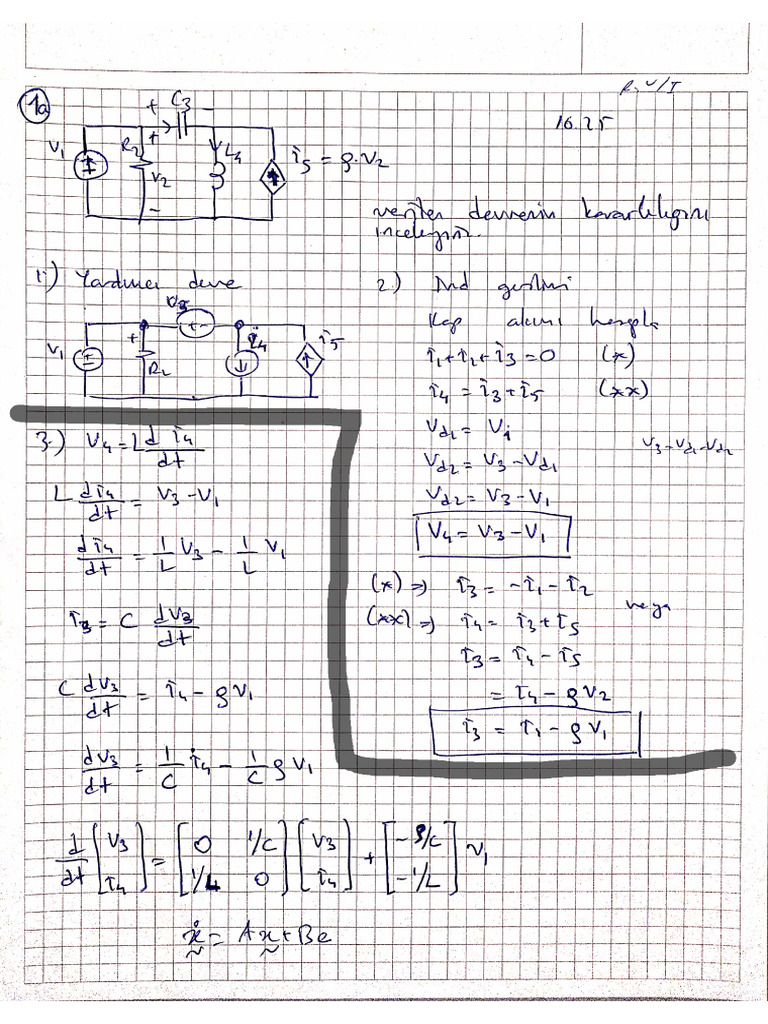 1a
R=V/I
16.25
+ C3 -
V1
R2
+
V2
-
L4
i5 = ρ.V2
verilen devrenin kararlılığını
inceleyiniz.
1.) Yardımcı devre
V3
+ -
V1
+
R2
i4
i5
2.) Dnd gerilimi
Kap akımı hesapla
i1+i2+i3=0 (x)
i4 = i3+i5 (xx)
Vd1 = Vi
Vd2 = V3-Vd1
V3=Vd1-Vd2
Vd2 = V3-V1
V4 = V3-V1
(x) => i3 = -i1-i2
veya
(xx) => i4 = i3+i5
i3 = i4-i5
= i4-ρV2
i3 = i1-ρV1
3.) V4=L d i4/dt
L di4/dt = V3-V1
di4/dt = 1/L V3 - 1/L V1
i3 = C dV3/dt
C dV3/dt = i4 - ρV1
dV3/dt = 1/C i4 - 1/C ρ V1
d/dt [V3 i4] = [0 1/C 1/L 0] [V3 i4] + [-ρ/C -1/L] V1
ẋ = Ax+Be